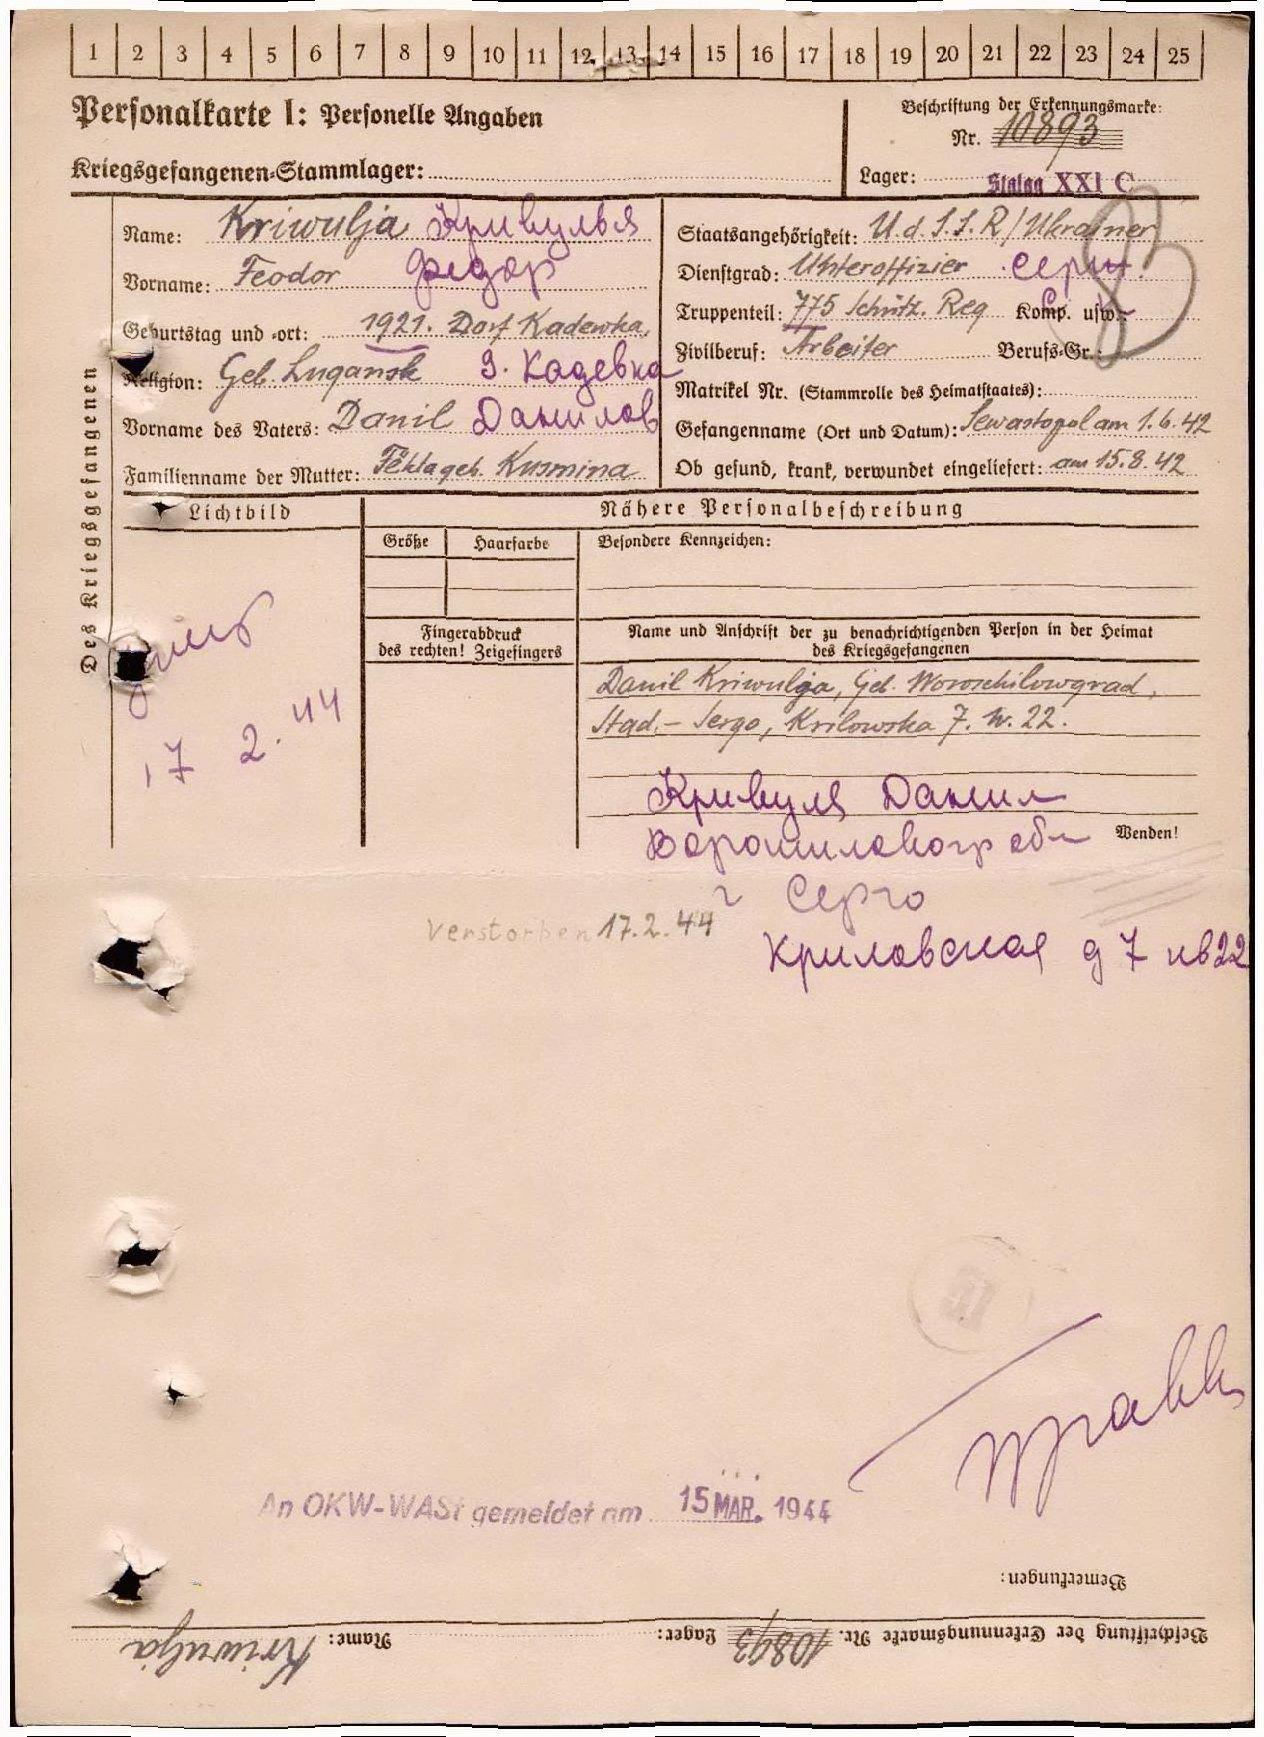 1 2 3 4 5 6 7 8 9 10 11 12 13 14 15 16 17 18 19 20 21 22 23 24 25
Personalkarte I: Personelle Angaben
Kriegsgefangenen-Stammlager:
Beschriftung der Erkennungsmarke:
Nr. 10893
Lager: Stalag XXI C
Des Kriegsgefangenen
Name: Kriwulja Кривулья
Vorname: Feodor Федор
Geburtstag und -ort: 1921. Dorf Kadewka,
Religion: Geb. Lugansk Кадевка
Vorname des Vaters: Danil Данилов
Familienname der Mutter: Tékla geb. Kusmina
Staatsangehörigkeit: U.d.S.S.R/Ukrainer
Dienstgrad: Unteroffizier серж
Truppenteil: 775 Schütz. Reg Komp. usw.
Zivilberuf: Arbeiter Berufs-Gr.:
Matrikel Nr. (Stammrolle des Heimatstaates):
Gefangenname (Ort und Datum): Sewastopol am 1.6.42
Ob gesund, krank, verwundet eingeliefert: am 15.8.42
Lichtbild
Nähere Personalbeschreibung
Größe Haarfarbe Besondere Kennzeichen:
Fingerabdruck
des rechten! Zeigefingers
Name und Anschrift der zu benachrichtigenden Person in der Heimat
des Kriegsgefangenen
Danil Kriwulja, Geb. Woroschilowgrad,
Stad.- Sergo, Krilowska 7. W. 22.
умер
17 2. 44
Кривуля Данил
Ворошиловогр обл
Wenden!
г Серго
Криловская д 7 кв 22
Verstorben 17.2.44
An OKW-WASt gemeldet am 15 MÄR. 1944
Bemerkungen:
Beschriftung der Erkennungsmarke Nr. 10893 Lager: Name: Kriwulja